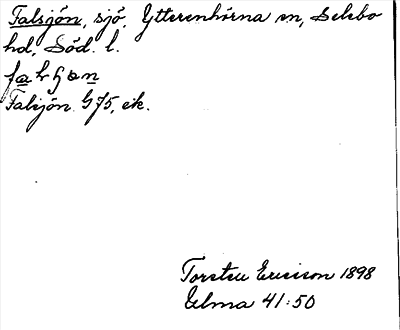 Falsjön, sjö, Ytterenhörna sn, Selebo
hd, Söd. l.
Falsjön G 75, ek.
Torsten Ericson 1898
Elma 41:50